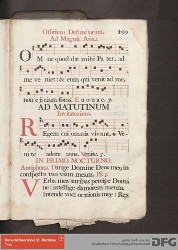 Officium Defunctorum. 199
Ad Magnif. Ana.
O Mne quod dat mihi Pater, ad
me veniet: & eum qui venit ad me,
non ejiciam foras. E u o u a e.
AD MATUTINUM
Invitatorium.
REgem cui omnia vivunt, * Ve-
nite adoremus. Venite.
IN PRIMO NOCTURNO.
Antiphona. Dirige Domine Deus meus in
conspectu tuo viam meam. Ps.
VErba mea auribus percipe Domi-
ne: intellige clamorem meum.
Intende voci orationis meæ: Rex
DFG